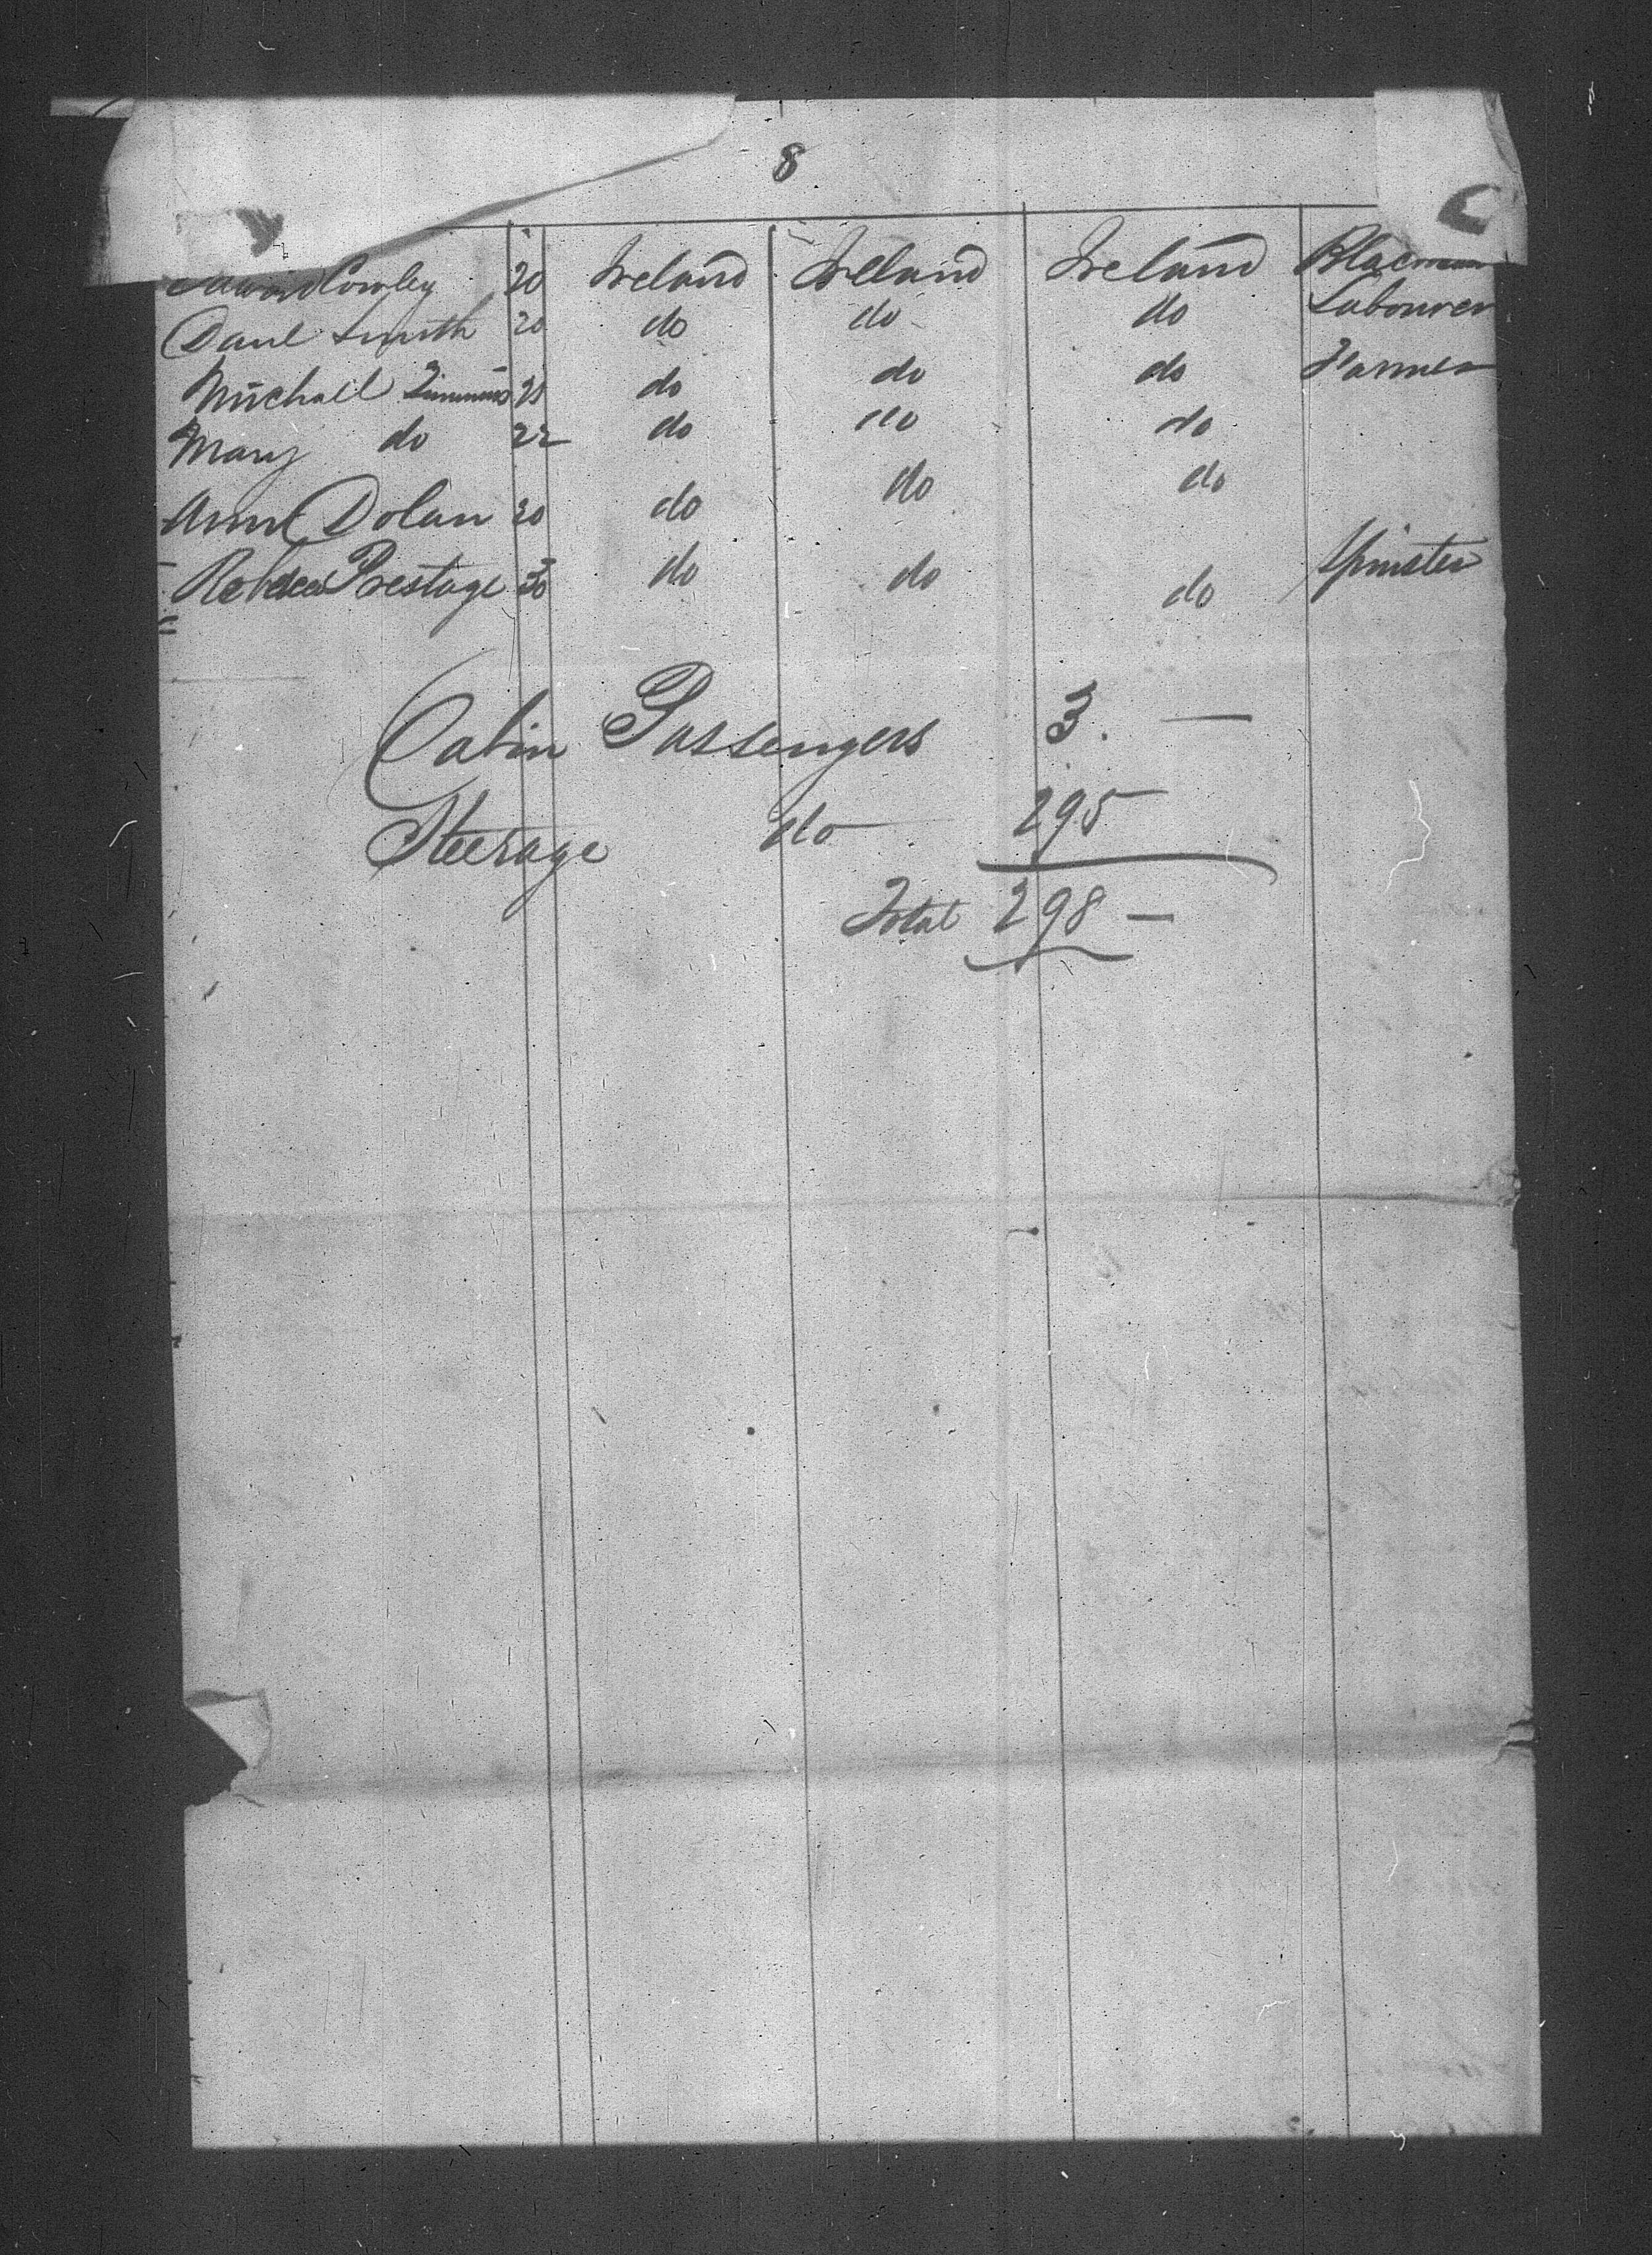 8
Cowley 20 Ireland Ireland Ireland
Danl Smith 20 do do do Labourer
Michall 25 do do do Farmer
Mary do 22 do do do
Ann Dolan 20 do do do
Rebecca Prestage 30 do do do Spinster
Cabin Passengers 3. —
Steerage do 295
Total 298 —